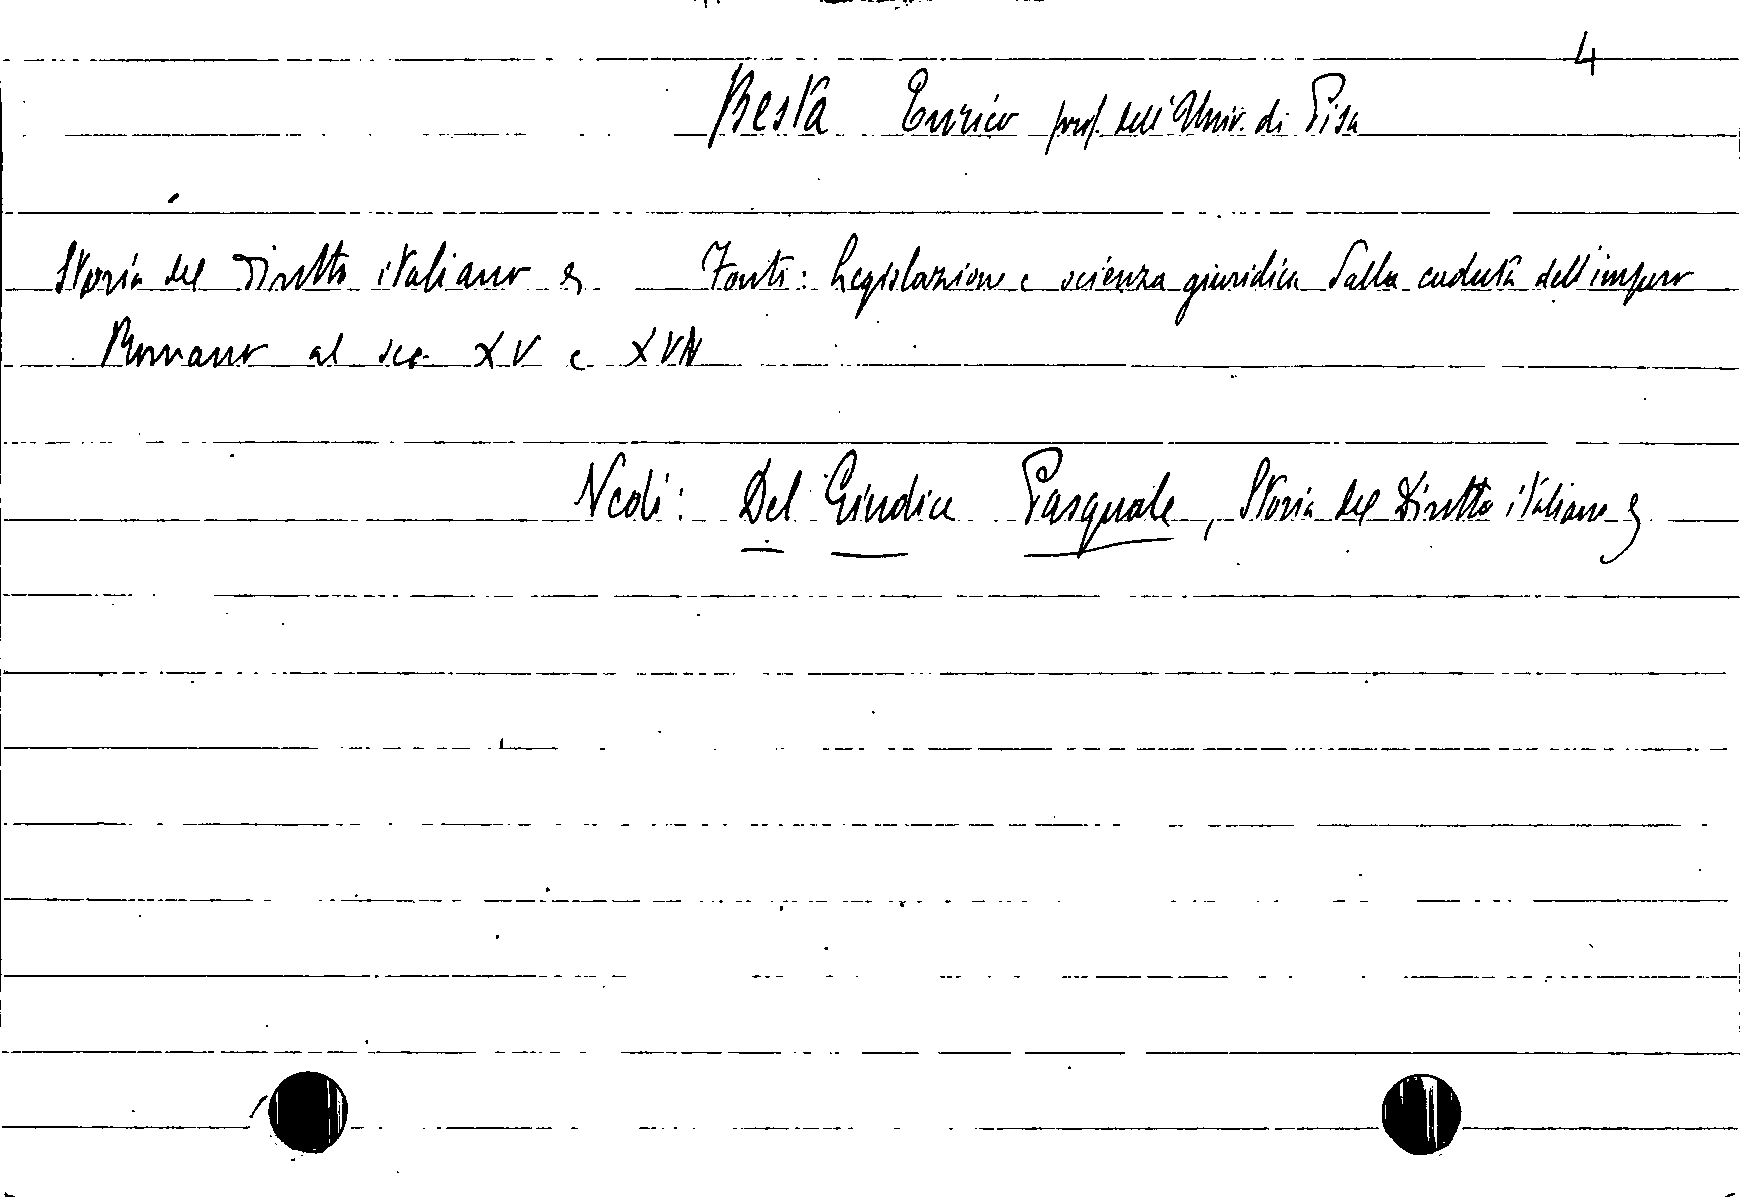 4
Besta Enrico prof. dell'Univ. di Pisa
Storia del Diritto italiano Fonti: Legislazione e scienza giuridica dalla caduta dell'impero
Romano al sec. XV e XVI
Vedi: Del Giudice Pasquale, Storia del Diritto italiano